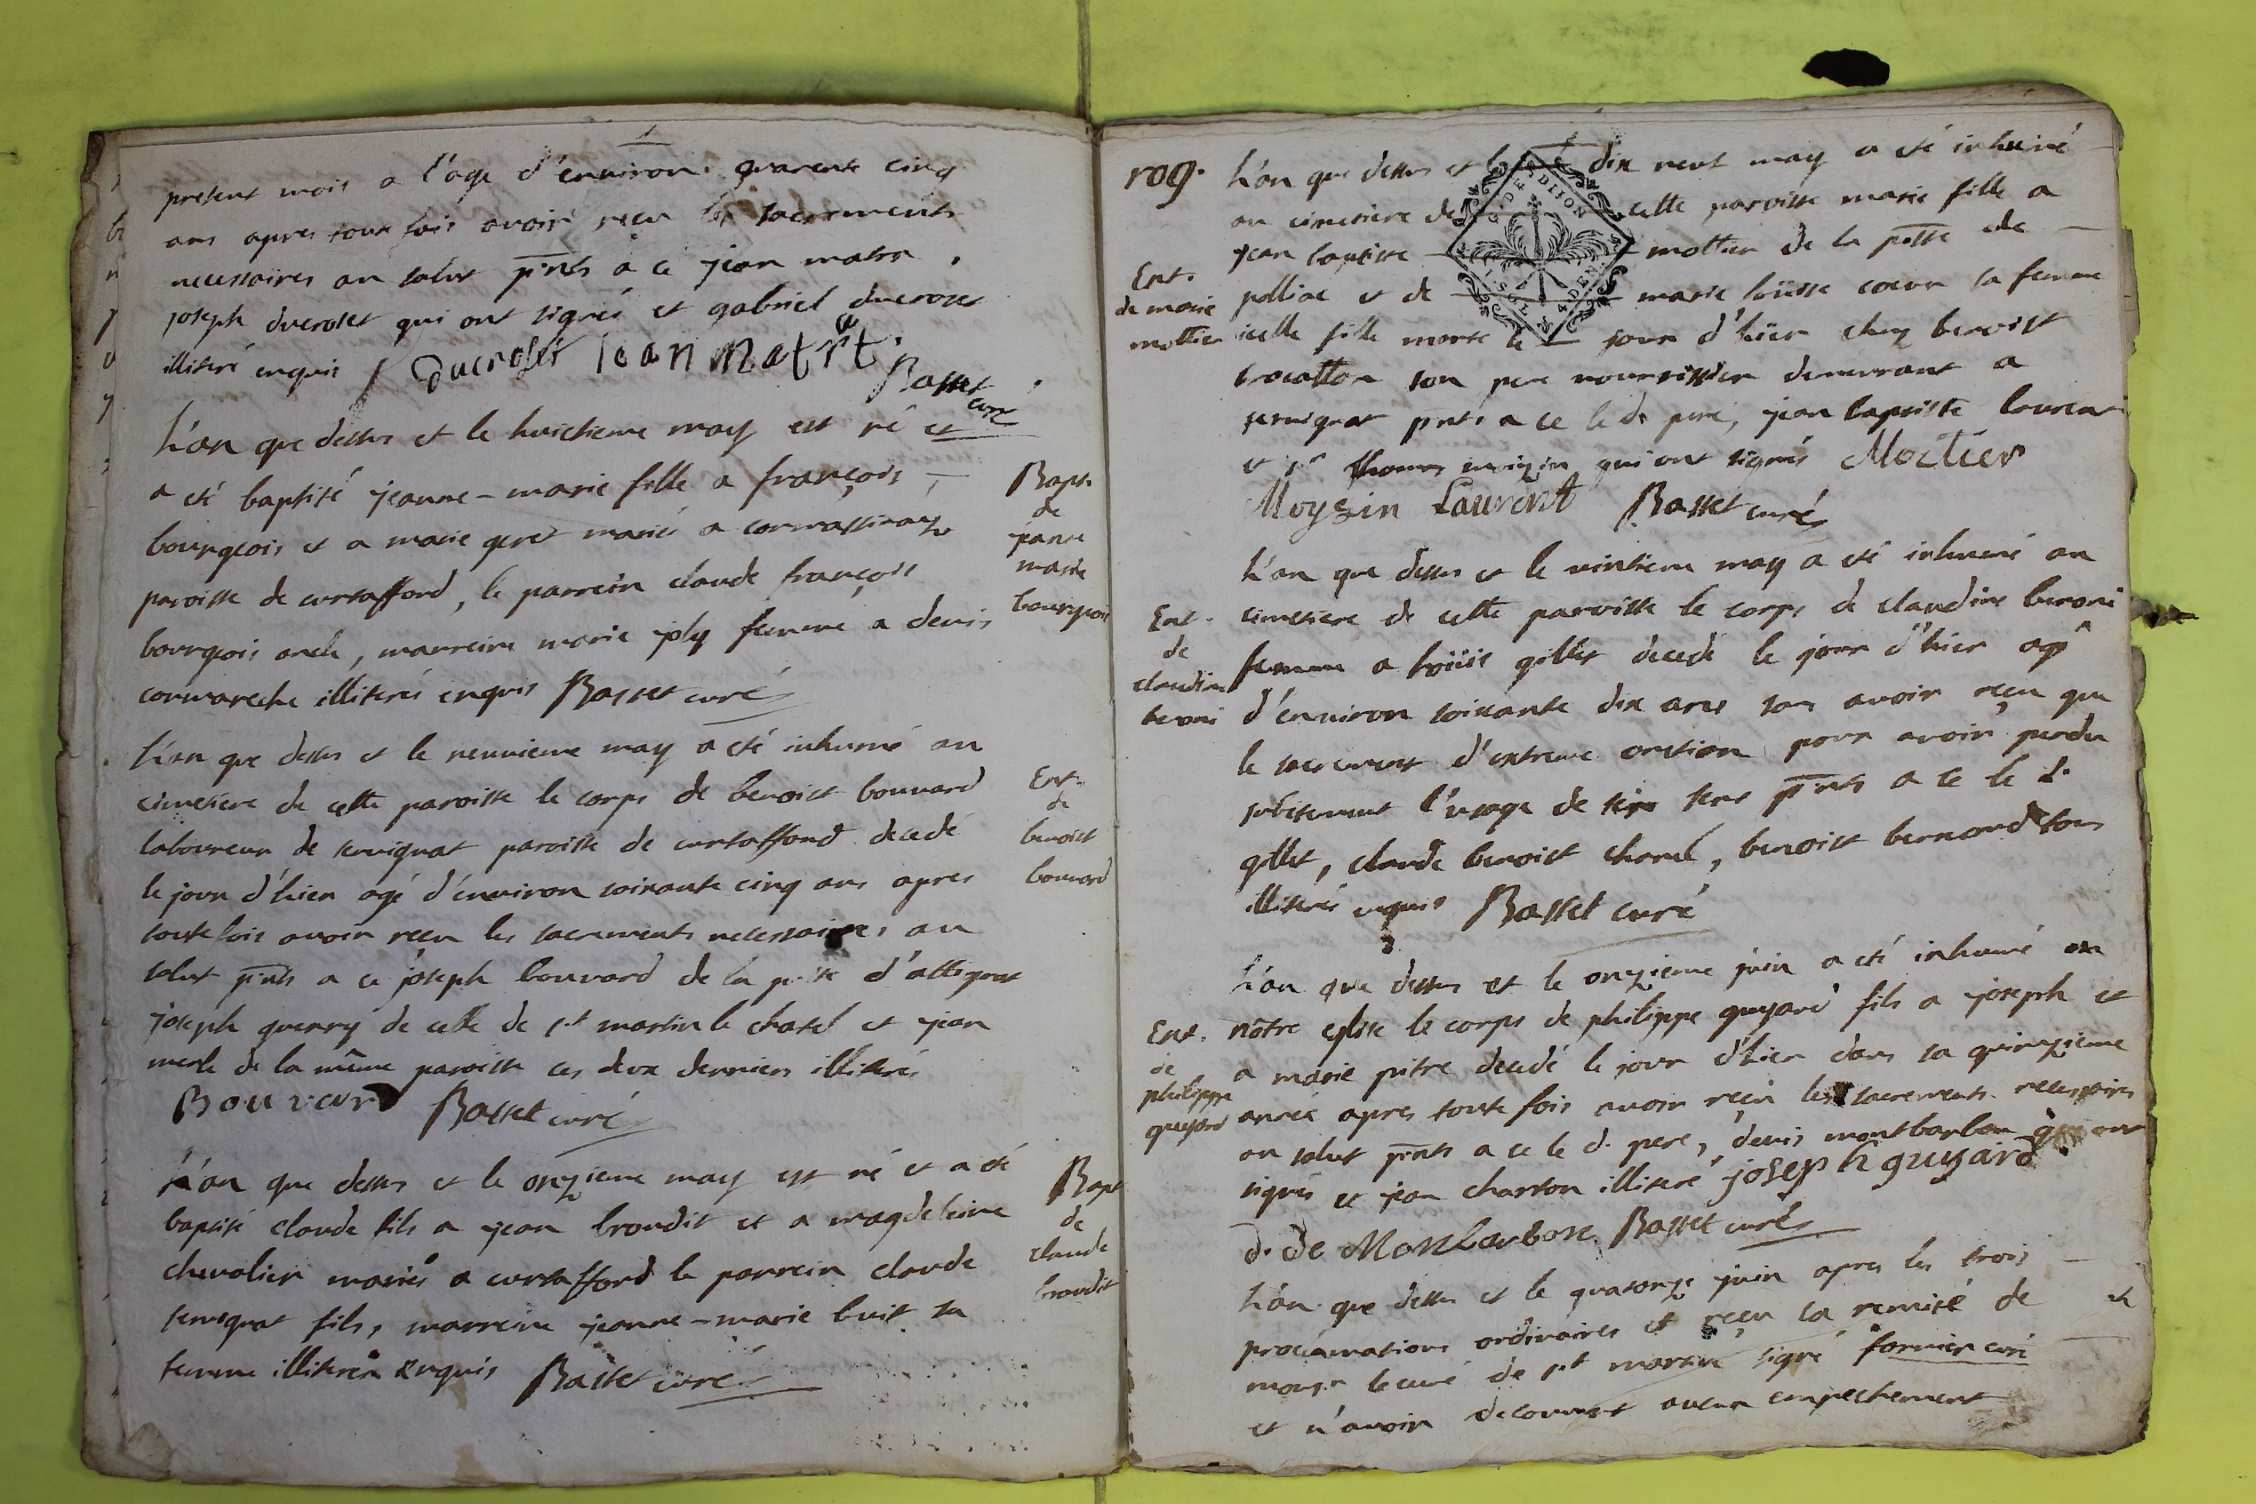 present mois a l'age d'environ quarente cinq
ans apres toute fois avoir reçu les sacrements
necessaires au salut pnts a ce jean matra
joseph ducroset qui ont signés et gabriel ducroset
illiteré enquis ducroset jean matra
Basset curé
L'an que dessus et le huictieme may est né et
a eté baptisé jeanne-marie fille a françois
bourgeois et a marie geret mariés a
paroisse de curtafford, le parrein claude françois
bourgeois oncle, marreine marie joly femme a denis
cormareche illiterés enquis Basset curé
Bapt.
de
jeanne
marie
bourgeois
L'an que dessus et le neuvieme may a eté inhumé au
cimetiere de cette paroisse le corps de benoict bouvard
laboureur de servignat paroisse de curtaffond decedé
le jour d'hier agé d'environ soixante cinq ans apres
toute fois avoir reçu les sacrements necessaires au
salut pnts a ce joseph bouvard de la psse d'attignat
joseph guerry de celle de st martin le chatel et jean
merle de la même paroisse ces deux derniers illiterés
Bouvard Basset curé
Ent.
de
benoict
bouvard
L'an que dessus et le onzieme may est né et a eté
baptisé claude fils a jean broudit et a magdeleine
chevalier mariés a curtafford le parrein claude
servignat fils, marreine jeanne-marie buit sa
femme illiterés enquis Basset curé
Bapt
de
claude
broudit
rog. L'an que dessus et le dix neuf may a eté inhumé
au cimetiere de cette paroisse marie fille a
jean baptiste mottier de la psse de
polliac et de marie loüise coeur sa femme
icelle fille morte le jour d'hier chez benoist
brocatton son pere nourrissier demeurant a
servignat pnts a ce led pere, jean baptiste laurent
et sr thomas moizin qui ont signés Mottier
Moyzin Laurent Basset curé
Ent.
de marie
mottier
DIJON
G. DE
1 SOL
4 DEN.
L'an que dessus et le vintieme may a eté inhumé au
cimetiere de cette paroisse le corps de claudine beroni
femme a loüis gillet decedé le jour d'hier agé
d'environ soixante dix ans sans avoir reçu que
le sacrement d'extreme onction pour avoir perdu
subitement l'usage de ses sens pnts a ce le d.
gillet, claude benoist charel, benoist bernard tous
illiterés enquis Basset curé
Ent.
de
claudine
beroni
L'an que dessus et le onzieme juin a eté inhumé en
nôtre eglise le corps de philippe guyard fils a joseph et
a marie pitre decedé le jour d'hier dans sa quinzieme
année apres toute fois avoir reçu les sacrements necessaires
au salut pnts a ce le d. pere, denis montbarbon qui ont
signés et jean charton illiteré joseph guyard
d. de Monbarbon Basset curé
Ent.
de
philippe
guyard
L'an que dessus et le quatorze juin apres les trois
proclamations ordinaires et reçu la remise de
monsr le curé de st martin signé fornier curé
et n'avoir decouvert aucun empechement